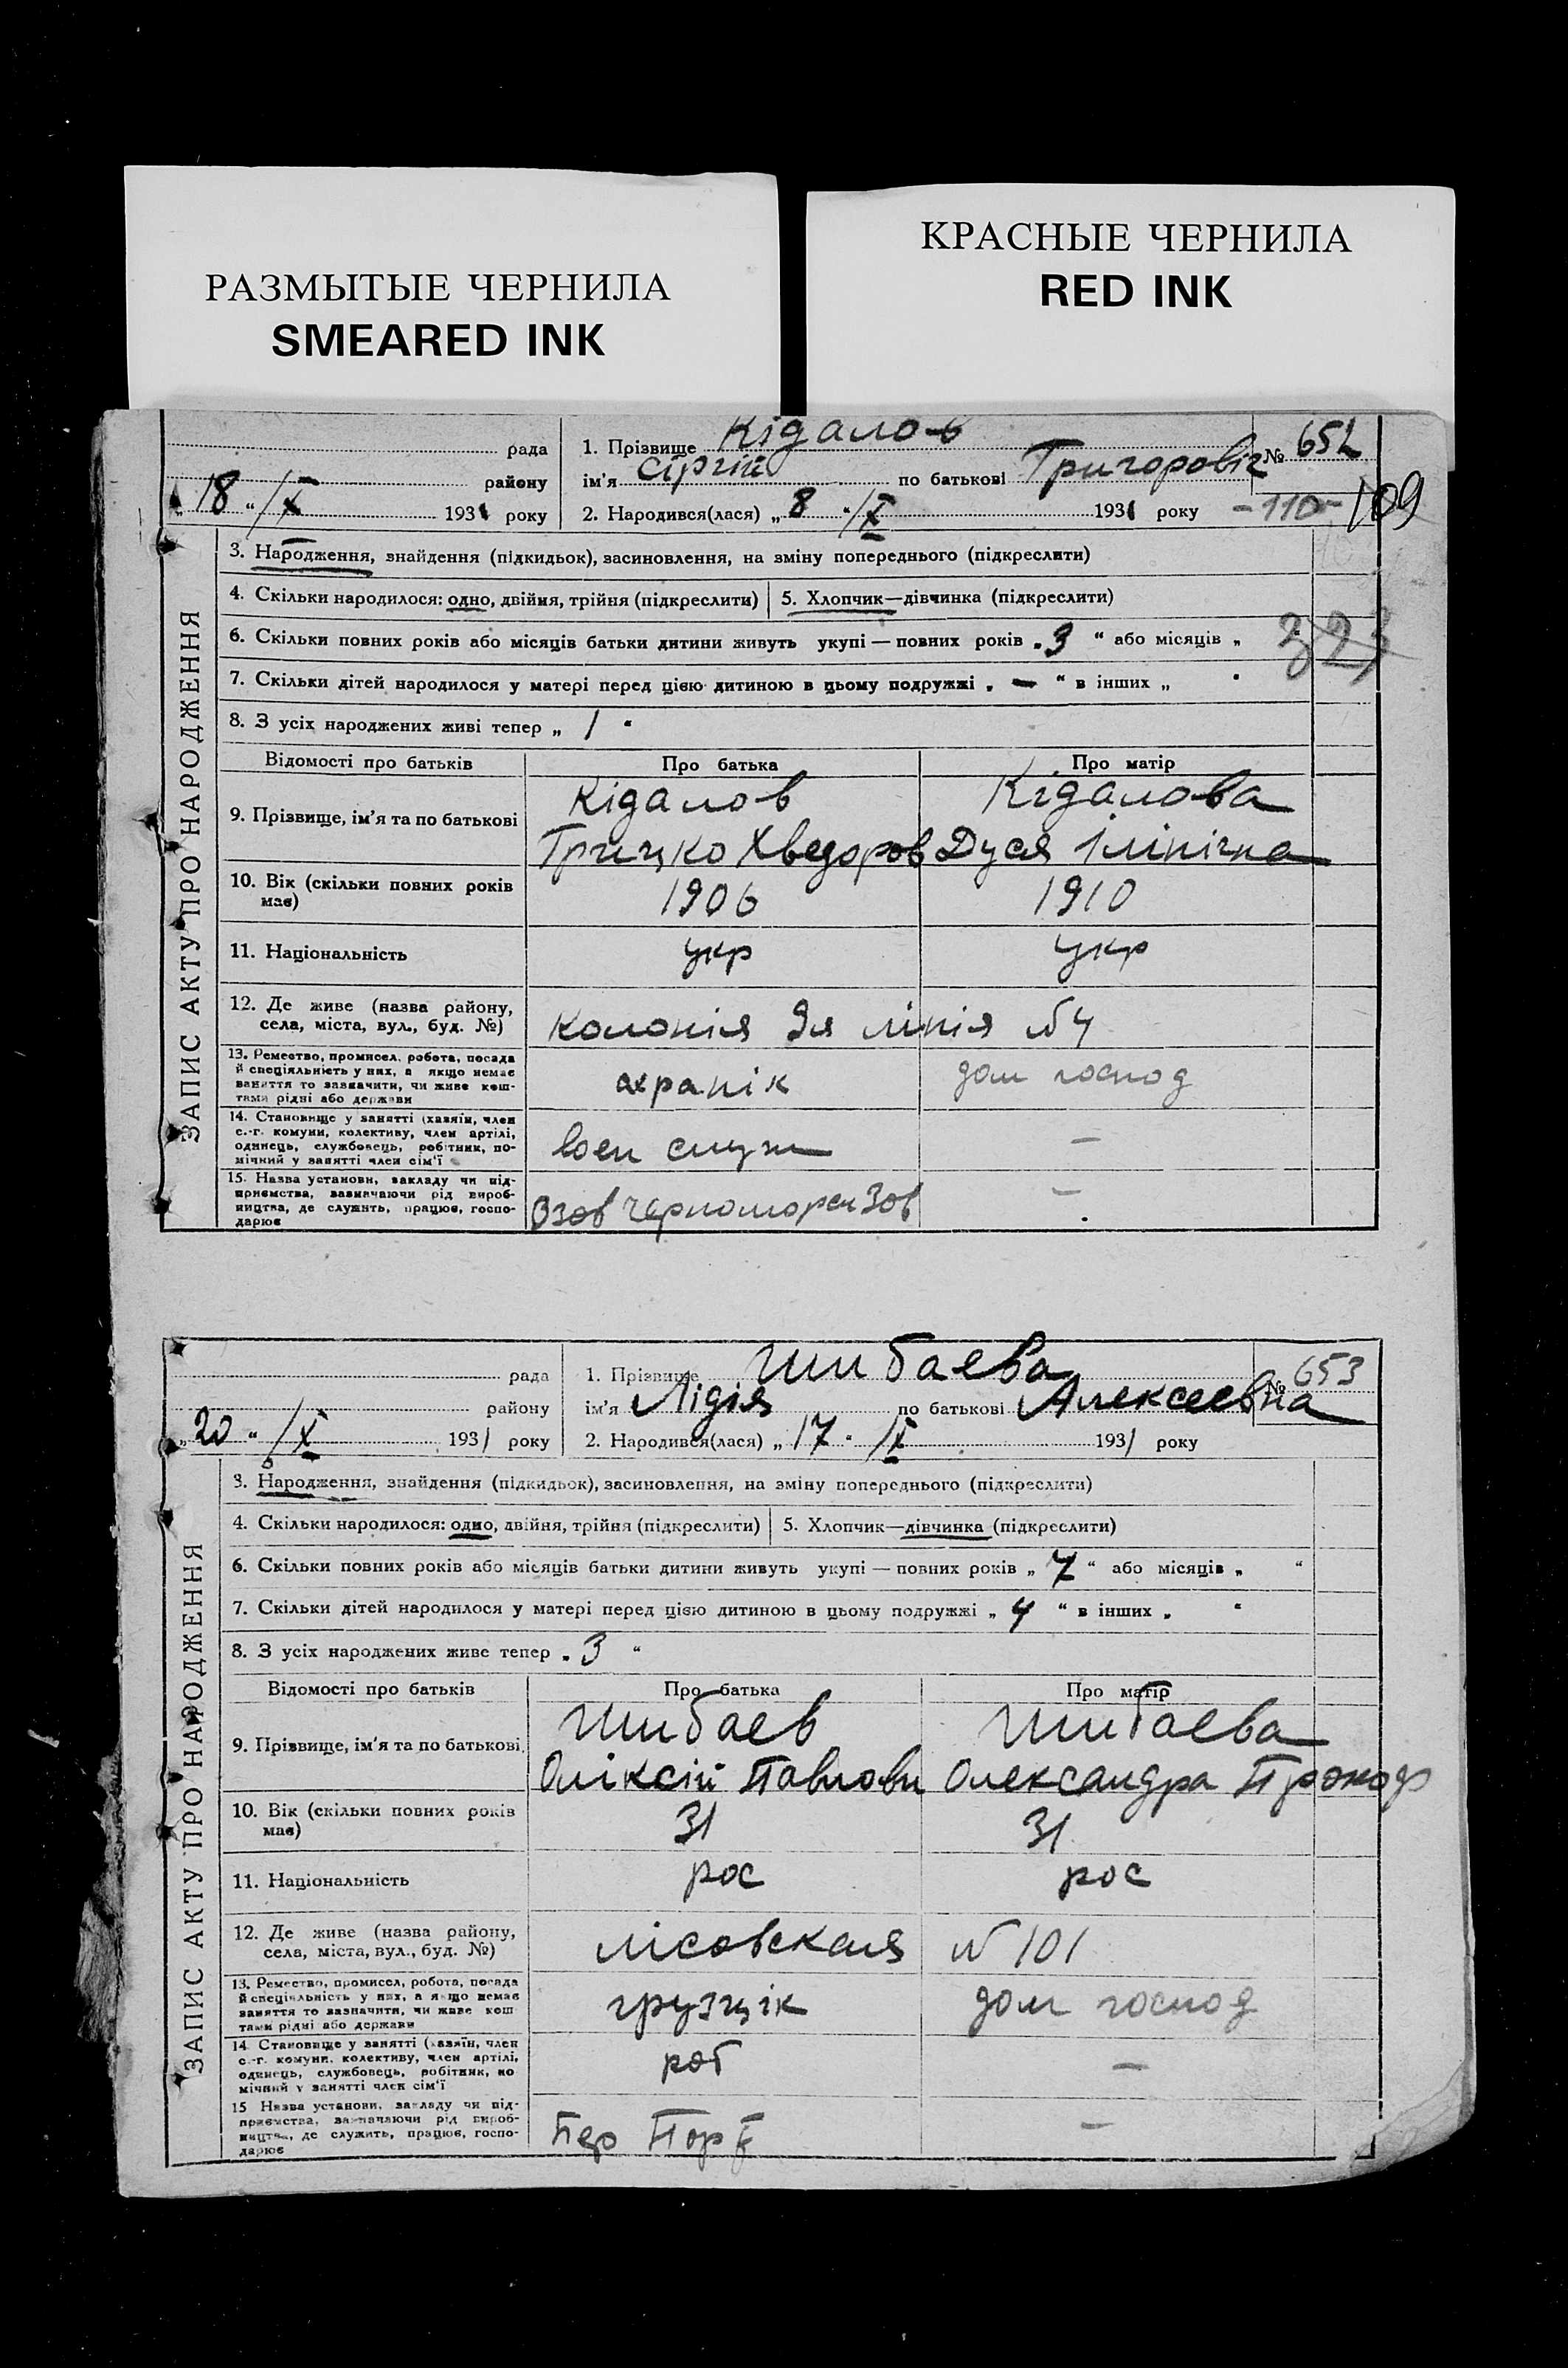 РАЗМЫТЫЕ ЧЕРНИЛА
SMEARED INK
КРАСНЫЕ ЧЕРНИЛА
RED INK
рада
1. Прізвище Кідалов
№ 652
району
ім'я Сіргій по батькові Григоровіч
„18“ /X 1931 року
2. Народився(лася) „8“ /X 1931 року
-110- 109
ЗАПИС АКТУ ПРО НАРОДЖЕННЯ
3. Народження, знайдення (підкидьок), засиновлення, на зміну попереднього (підкреслити)
4. Скільки народилося: одно, двійня, трійня (підкреслити)
5. Хлопчик—дівчинка (підкреслити)
6. Скільки повних років або місяців батьки дитини живуть укупі — повних років „3“ або місяців „
323
7. Скільки дітей народилося у матері перед цією дитиною в цьому подружжі „—“ в інших „ “
8. З усіх народжених живі тепер „1“
Відомості про батьків
Про батька
Про матір
9. Прізвище, ім'я та по батькові
Кідалов
Грицко Хведоров
Кідалова
Дуся Ілінічна
10. Вік (скільки повних років має)
1906
1910
11. Національність
укр
укр
12. Де живе (назва району, села, міста, вул., буд. №)
Колонія 9я лінія №4
13. Ремество, промисел, робота, посада
й спеціяльність у них, а якщо немає
заняття то зазначити, чи живе кош-
тами рідні або держави
охранік
дом господ
14. Становище у занятті (хазяїн, член
с.-г. комуни, колективу, член артілі,
одинець, службовець, робітник, по-
мічний у занятті член сім'ї
воен служ
—
15. Назва установи, закладу чи під-
приємства, зазначаючи рід вироб-
ництва, де служить, працює, госпо-
дарює
—
рада
1. Прізвище Шибаева
№ 653
району
ім'я Лідія по батькові Алексеевна
„20“ /X 1931 року
2. Народився(лася) „17“ /X 1931 року
ЗАПИС АКТУ ПРО НАРОДЖЕННЯ
3. Народження, знайдення (підкидьок), засиновлення, на зміну попереднього (підкреслити)
4. Скільки народилося: одно, двійня, трійня (підкреслити)
5. Хлопчик—дівчинка (підкреслити)
6. Скільки повних років або місяців батьки дитини живуть укупі — повних років „7“ або місяців „ “
7. Скільки дітей народилося у матері перед цією дитиною в цьому подружжі „4“ в інших „ “
8. З усіх народжених живе тепер „3“
Відомості про батьків
Про батька
Про матір
9. Прізвище, ім'я та по батькові
Шибаев
Оліксій Павлови
Шибаева
Олександра
10. Вік (скільки повних років має)
31
31
11. Національність
рос
рос
12. Де живе (назва району, села, міста, вул., буд. №)
лісовская №101
13. Ремество, промисел, робота, посада
й спеціяльність у них, а якщо немає
заняття то зазначити, чи живе кош-
тами рідні або держави
грузцік
дом господ
14. Становище у занятті (хазяїн, член
с.-г. комуни, колективу, член артілі,
одинець, службовець, робітник, по-
мічний у занятті член сім'ї
роб
—
15. Назва установи, закладу чи під-
приємства, зазначаючи рід вироб-
ництва, де служить, працює, госпо-
дарює
—